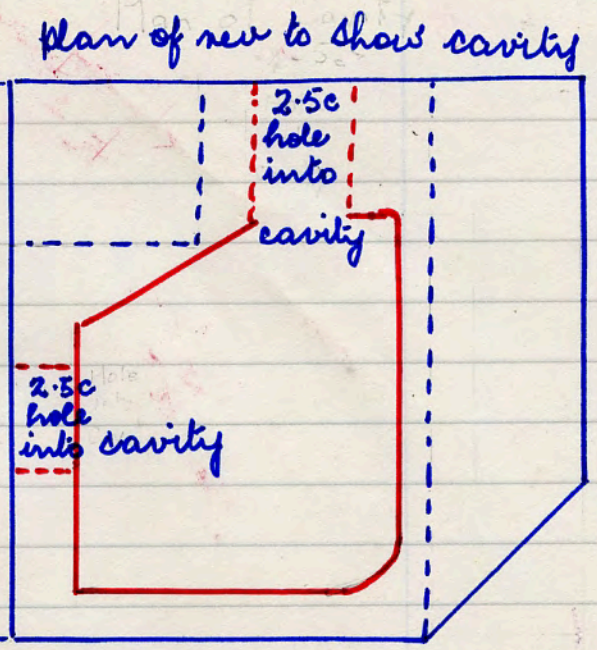 plan of new to show cavity
2.5c
hole
into
cavity
2.5c
hole
into cavity